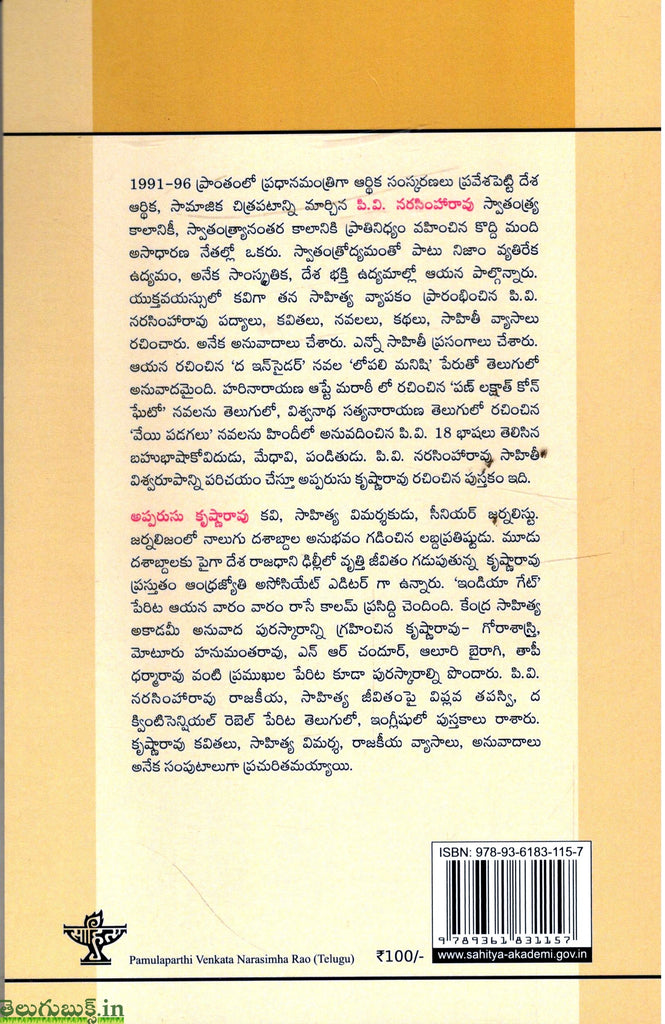 1991-96 ప్రాంతంలో ప్రధానమంత్రిగా ఆర్థిక సంస్కరణలు ప్రవేశపెట్టి దేశ
ఆర్థిక, సామాజిక చిత్రపటాన్ని మార్చిన పి.వి. నరసింహారావు స్వాతంత్ర్య
కాలానికీ, స్వాతంత్ర్యానంతర కాలానికి ప్రాతినిధ్యం వహించిన కొద్ది మంది
అసాధారణ నేతల్లో ఒకరు. స్వాతంత్రోద్యమంతో పాటు నిజాం వ్యతిరేక
ఉద్యమం, అనేక సాంస్కృతిక, దేశ భక్తి ఉద్యమాల్లో ఆయన పాల్గొన్నారు.
యుక్తవయస్సులో కవిగా తన సాహిత్య వ్యాపకం ప్రారంభించిన పి.వి.
నరసింహారావు పద్యాలు, కవితలు, నవలలు, కథలు, సాహితీ వ్యాసాలు
రచించారు. అనేక అనువాదాలు చేశారు. ఎన్నో సాహితీ ప్రసంగాలు చేశారు.
ఆయన రచించిన 'ద ఇన్‌సైడర్' నవల 'లోపలి మనిషి' పేరుతో తెలుగులో
అనువాదమైంది. హరినారాయణ ఆప్టే మరాఠీ లో రచించిన 'పణ్ లక్షాత్ కోన్
ఘేటో' నవలను తెలుగులో, విశ్వనాథ సత్యనారాయణ తెలుగులో రచించిన
'వేయి పడగలు' నవలను హిందీలో అనువదించిన పి.వి. 18 భాషలు తెలిసిన
బహుభాషాకోవిదుడు, మేధావి, పండితుడు. పి.వి. నరసింహారావు సాహితీ
విశ్వరూపాన్ని పరిచయం చేస్తూ అప్పరుసు కృష్ణారావు రచించిన పుస్తకం ఇది.
అప్పరుసు కృష్ణారావు కవి, సాహిత్య విమర్శకుడు, సీనియర్ జర్నలిస్టు.
జర్నలిజంలో నాలుగు దశాబ్దాల అనుభవం గడించిన లబ్దప్రతిష్టుడు. మూడు
దశాబ్దాలకు పైగా దేశ రాజధాని ఢిల్లీలో వృత్తి జీవితం గడుపుతున్న కృష్ణారావు
ప్రస్తుతం ఆంధ్రజ్యోతి అసోసియేట్ ఎడిటర్ గా ఉన్నారు. 'ఇండియా గేట్'
పేరిట ఆయన వారం వారం రాసే కాలమ్ ప్రసిద్ది చెందింది. కేంద్ర సాహిత్య
అకాడమీ అనువాద పురస్కారాన్ని గ్రహించిన కృష్ణారావు- గోరాశాస్త్రి,
మోటూరు హనుమంతరావు, ఎన్ ఆర్ చందూర్, ఆలూరి బైరాగి, తాపీ
ధర్మారావు వంటి ప్రముఖుల పేరిట కూడా పురస్కారాల్ని పొందారు. పి.వి.
నరసింహారావు రాజకీయ, సాహిత్య జీవితంపై విప్లవ తపస్వి, ద
క్వింటిసెన్షియల్ రెబెల్ పేరిట తెలుగులో, ఇంగ్లీషులో పుస్తకాలు రాశారు.
కృష్ణారావు కవితలు, సాహిత్య విమర్శ, రాజకీయ వ్యాసాలు, అనువాదాలు
అనేక సంపుటాలుగా ప్రచురితమయ్యాయి.
ISBN: 978-93-6183-115-7
9 789361 831157
www.sahitya-akademi.gov.in
साहित्य
Pamulaparthi Venkata Narasimha Rao (Telugu)
₹100/-
తెలుగుబుక్స్.in